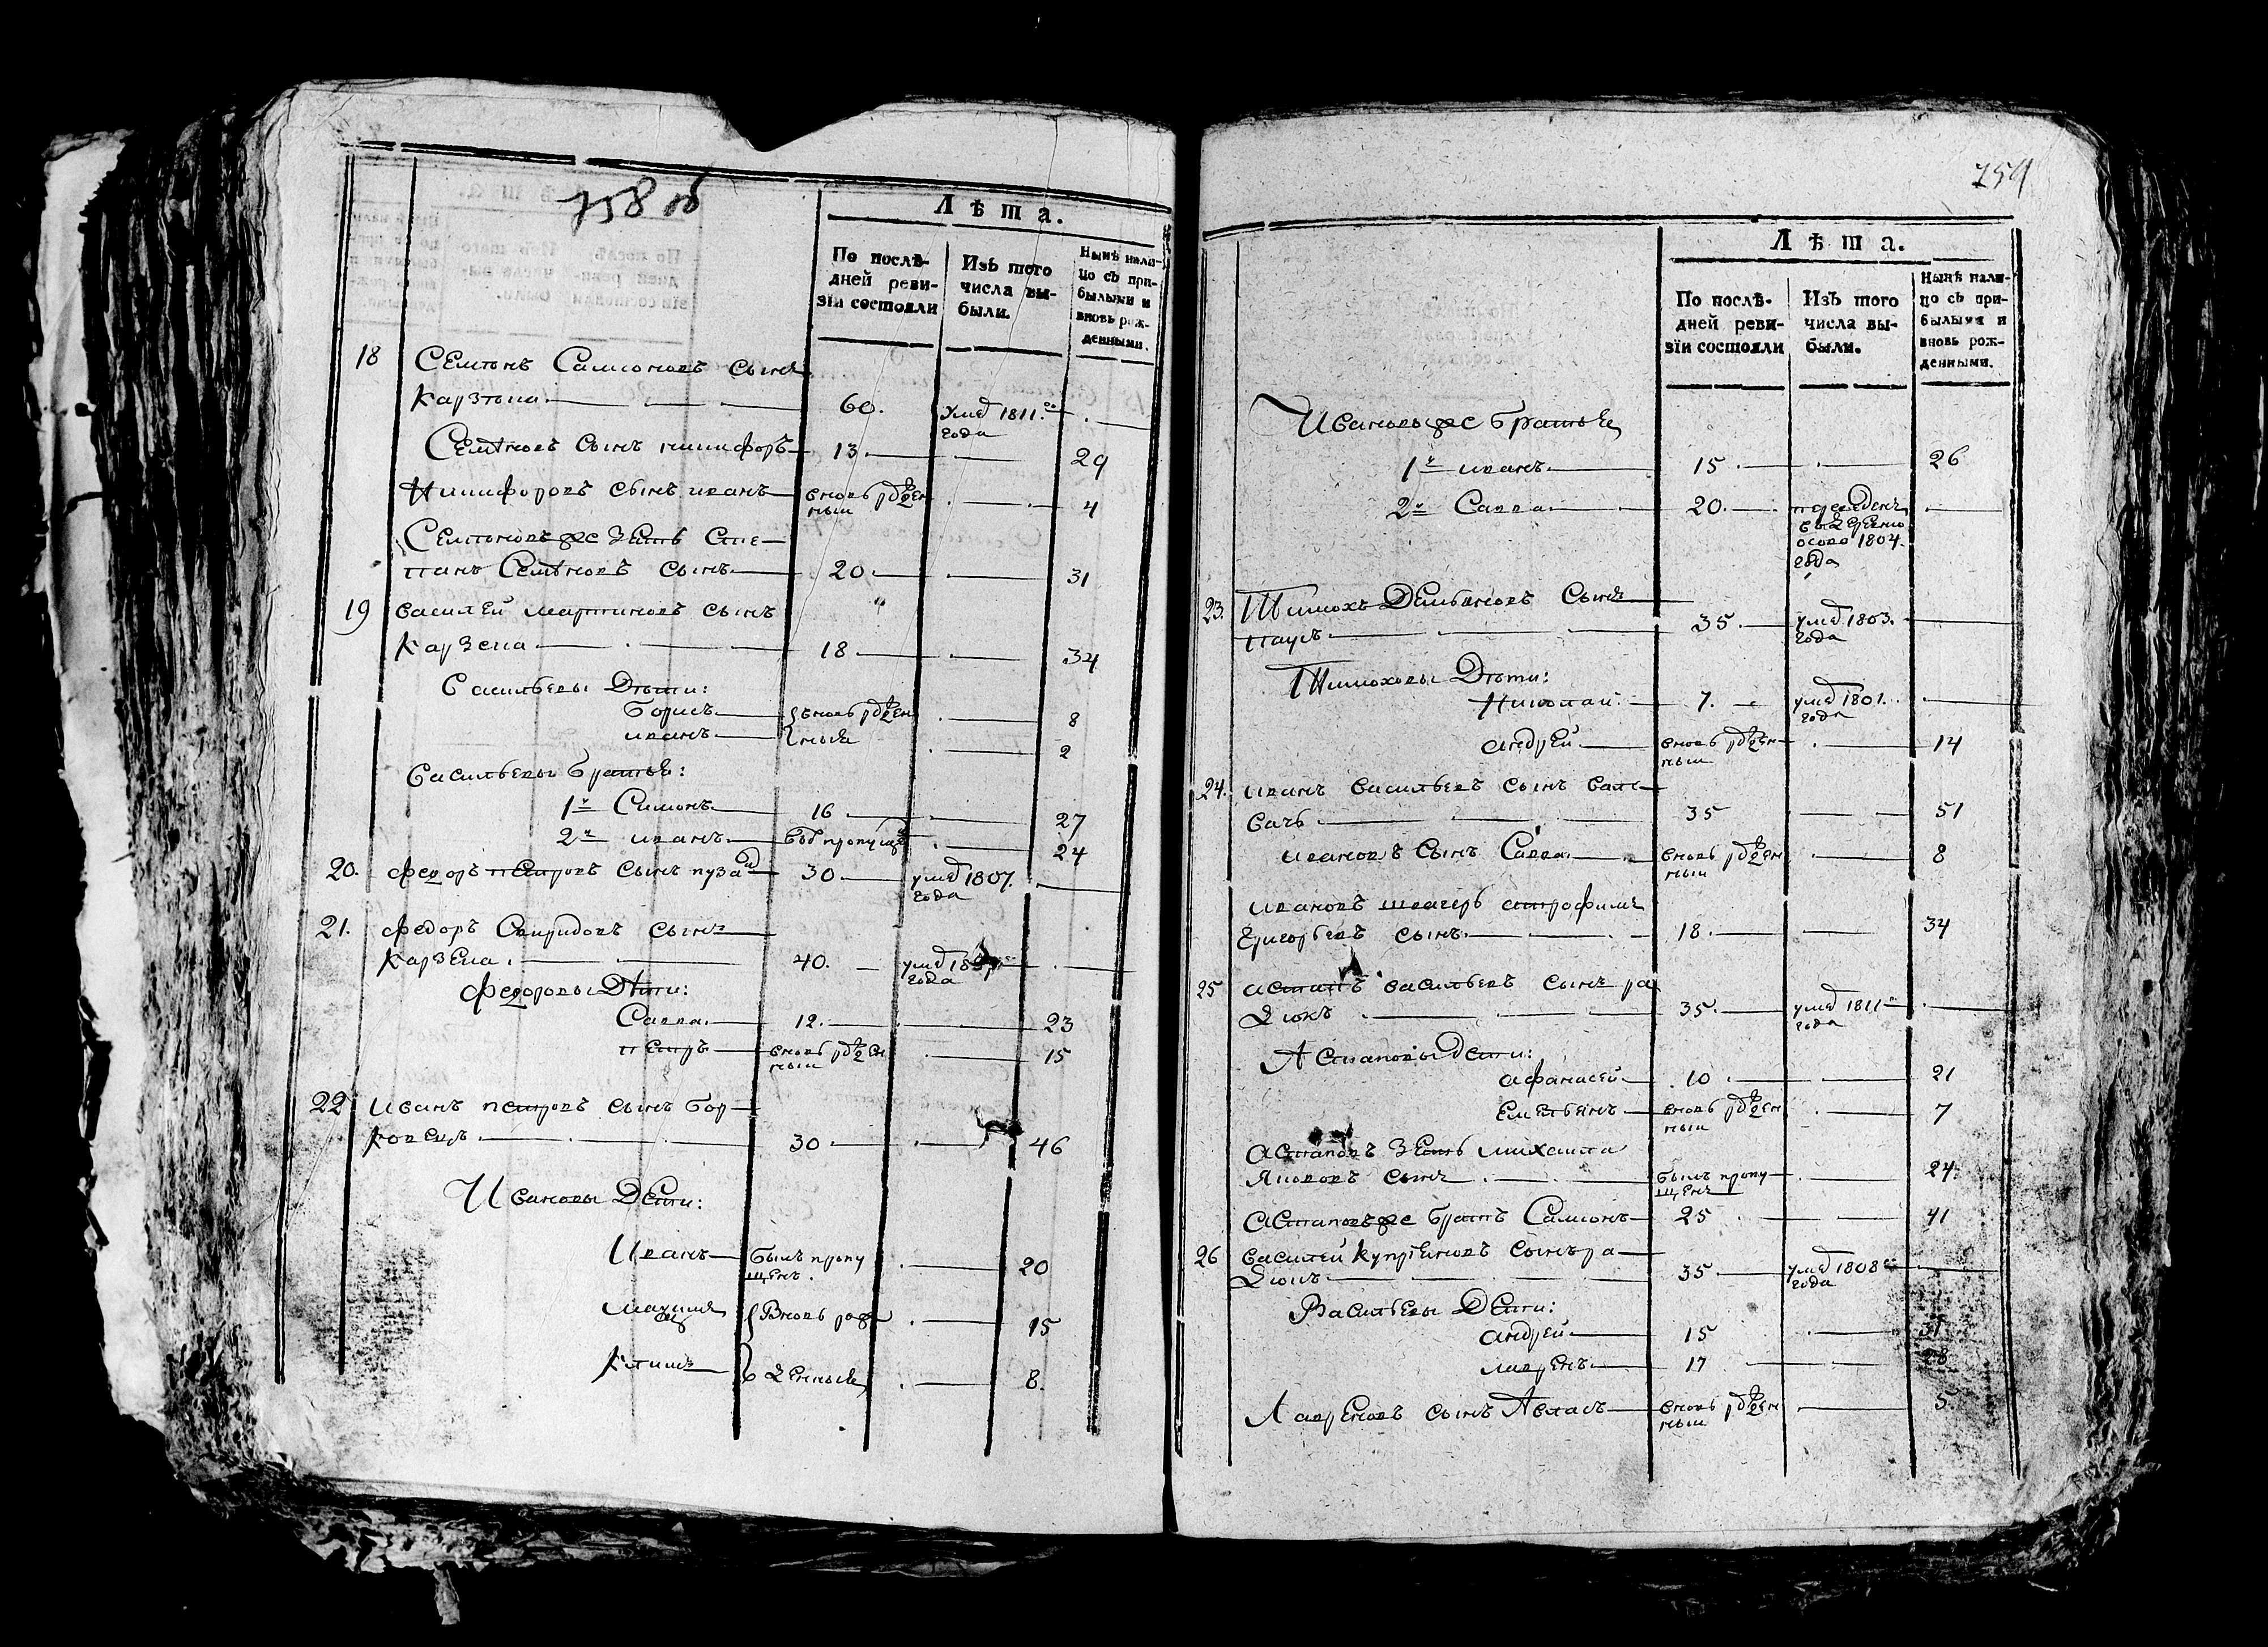 758 об
Лѣта.
По послѣ-
дней реви-
зіи состояли
Изъ того
числа вы-
были.
Нынѣ нали-
цо съ при-
былыми и
вновь рож-
денными.
18 Семѣнъ Самсоновъ сынъ
Карзѣна 60. умер 1811 го года
Семѣновъ сынъ никифоръ 13. 29
Никифоровъ сынъ иванъ вновь рожден 4
ный
Семѣновъ же Зеть Сте-
панъ Семѣновъ сынъ 20 31
19 Василей мартиновъ сынъ
Карзена 18 34
Васильевы Дѣти:
борисъ вновь рожден 8
иванъ ные 2
Васильевы братья:
1й Симонъ 16 27
2й иванъ был пропущен 24
20. федоръ петровъ сынъ 30 умер 1807. года
21. федоръ Свиридовъ сынъ
Карзена. 40. умер года
федоровы Дѣти:
Савва. 12. 23
петръ вновь рожден 15
ный
22 Иванъ петровъ сынъ бор-
ковецъ 30 46
Ивановы Дети:
Иванъ былъ пропу 20
щенъ.
Максимъ Вновь рож 15
Климъ денные 8.
759
Лѣта.
По послѣ-
дней реви-
зіи состояли
Изъ того
числа вы-
были.
Нынѣ нали-
цо съ при-
былыми и
вновь рож-
денными.
Ивановы же братье
1й иванъ 15. 26
2й Савва 20.
1804.
года
23. Тимохъ Демьяновъ Сынъ
35. умер 1803. года
Тимоховы Дѣти:
Николай 7. умер 1801. года
андрей вновь рожден 14
ный
24. иванъ васильевъ сынъ
35 51
ивановъ сынъ Савва вновь рожден 8
ный
ивановъ швагеръ
Григорьевъ сынъ 18. 34
25 астапъ васильевъ сынъ ра
дюкъ 35. умер 1811 го года
Астаповы дети:
афанасей 10 21
Емельянъ вновь рожден 7
ный
астаповъ Зеть михаила
Якововъ сынъ былъ пропу 24.
щенъ
астаповъ же братъ Самсонъ 25 41
26 василей купріяновъ сынъ ра
дюкъ 35 умер 1808 го года
Васильевы Дети:
андрей 15 31
лавренъ 17 28
Лавреновъ сынъ Авласъ вновь рожден 5.
ный